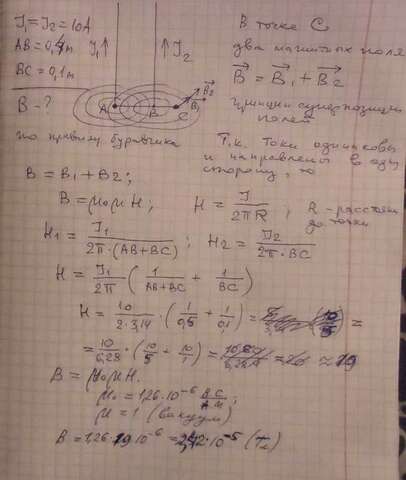 J₁ = J₂ = 10A
AB = 0,4м
BC = 0,1м
B - ?
J₁ ↑ ↑ J₂
A B C
B⃗₂
B⃗₁
В точке С
два магнитных поля
B⃗ = B⃗₁ + B⃗₂
принцип суперпозиции
полей
по правилу буравчика
Т.к. токи одинаковы
и направлены в одну
сторону, то
B = B₁ + B₂;
B = μ₀μH; H = J / 2πR; R - расстоян
до точки
H₁ = J₁ / 2π·(AB+BC); H₂ = J₂ / 2π·BC
H = J₁ / 2π (1 / AB+BC + 1 / BC)
H = 10 / 2·3,14 · (1 / 0,5 + 1 / 0,1) =
= 10 / 6,28 · (10 / 5 + 10 / 1) = ≈ 19
B = μ₀μH.
μ₀ = 1,26·10⁻⁶ В·С / А·М;
μ = 1 (вакуум)
B = 1,26·19·10⁻⁶ = 2,4·10⁻⁵ (Тл)